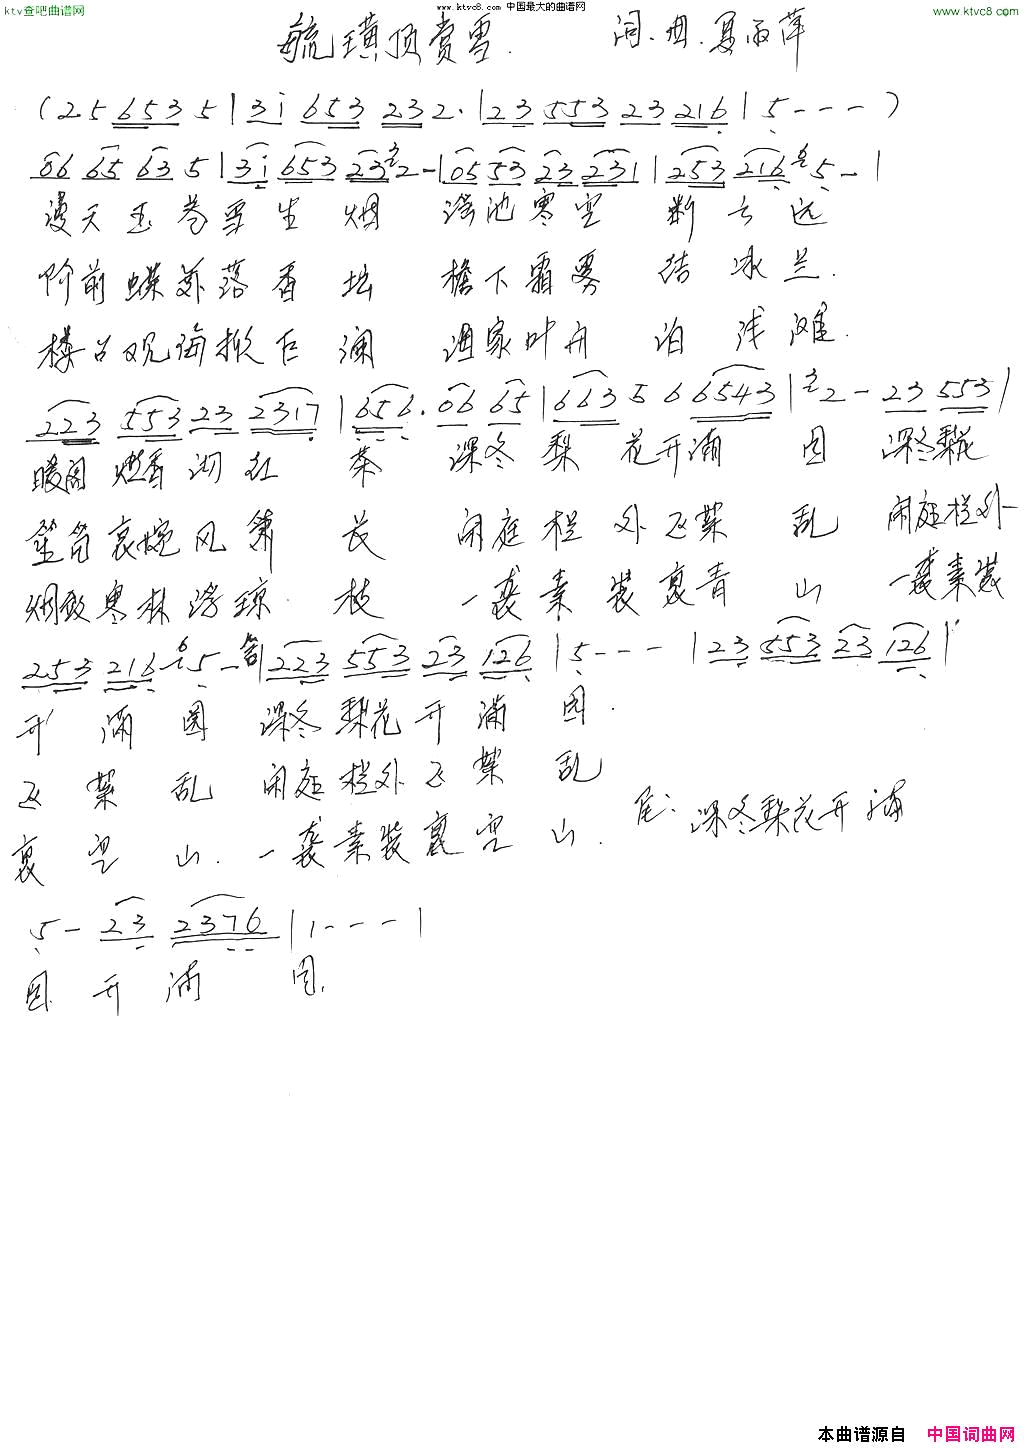 ktv查吧曲谱网
www.ktvc8.com
www.ktvc8.com 中国最大的曲谱网
www.ktvc8.com
毓璜顶赏雪. 词.曲.夏雨萍
(25 653 5 | 3i 653 232. | 23 553 23 216 | 5 - - - )
65 63 5 | 3i 653 23 2 - | 05 53 23 231 | 253 216 5 - |
漫天玉卷雪生烟 瑶池寒空断云远
阶前蝶落香坛 檐下霜雾结冰兰.
楼台观海掀巨澜 渔家叶舟泊浅滩.
223 553 23 2317 | 656. 06 65 | 663 5 6 6543 | 2 - 23 553 |
暖阁燃香沏红茶 深冬梨花开满园 深冬梨花
笙笛哀婉风箫长 闲庭栏外飞絮乱 闲庭栏外
烟敛寒林浮琼枝 一袭素装裹青山 一袭素装
253 216 5 - | 223 553 23 126 | 5 - - - | 23 553 23 126 |
开满园 深冬梨花开满园.
飞絮乱 闲庭栏外飞絮乱
裹空山. 一袭素装裹空山.
尾: 深冬梨花开满
5 - 23 2376 | 1 - - - |
园 开满园.
本曲谱源自 中国词曲网